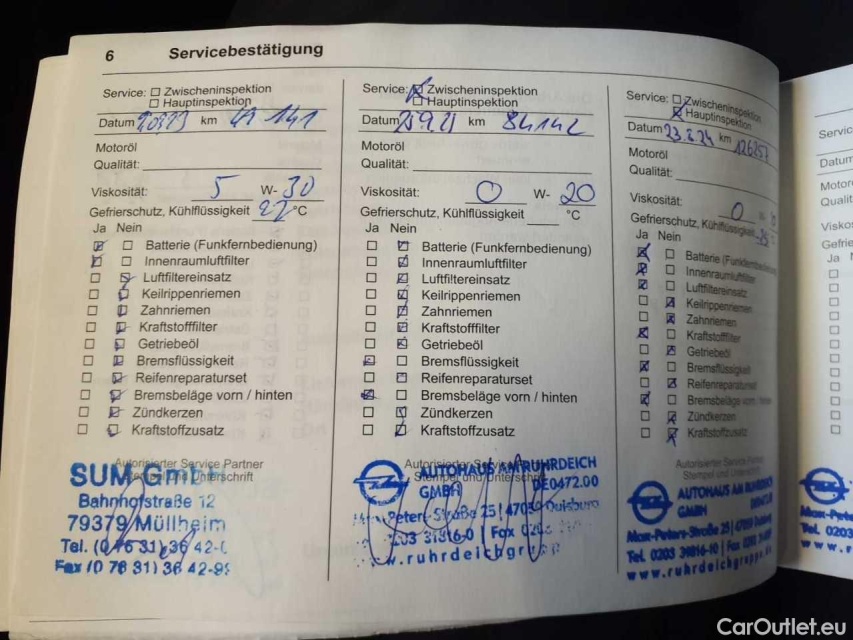 6 Servicebestätigung
Service: Zwischeninspektion
Hauptinspektion
Datum km
Motoröl
Qualität:
Viskosität: 5 W- 30
Gefrierschutz, Kühlflüssigkeit 22 °C
Ja Nein
Batterie (Funkfernbedienung)
Innenraumluftfilter
Luftfiltereinsatz
Keilrippenriemen
Zahnriemen
Kraftstofffilter
Getriebeöl
Bremsflüssigkeit
Reifenreparaturset
Bremsbeläge vorn / hinten
Zündkerzen
Kraftstoffzusatz
Autorisierter Service Partner
SUM GmbH
Bahnhofstraße 12
79379 Müllheim
Tel. (0 76 31) 36 42-
Fax (0 76 31) 36 42-
Service: Zwischeninspektion
Hauptinspektion
Datum km 84142
Motoröl
Qualität:
Viskosität: 0 W- 20
Gefrierschutz, Kühlflüssigkeit °C
Ja Nein
Batterie (Funkfernbedienung)
Innenraumluftfilter
Luftfiltereinsatz
Keilrippenriemen
Zahnriemen
Kraftstofffilter
Getriebeöl
Bremsflüssigkeit
Reifenreparaturset
Bremsbeläge vorn / hinten
Zündkerzen
Kraftstoffzusatz
Autorisierter Service Partner
Stempel und Unterschrift
AUTOHAUS AM RUHRDEICH
GMBH DE0472.00
Peters-Straße 25 | 47059 Duisburg
Fax
Service: Zwischeninspektion
Hauptinspektion
Datum 23.8.24 km 126257
Motoröl
Qualität:
Viskosität: 0
Gefrierschutz, Kühlflüssigkeit
Ja Nein
Batterie
Innenraumluftfilter
Luftfiltereinsatz
Keilrippenriemen
Zahnriemen
Kraftstofffilter
Getriebeöl
Bremsflüssigkeit
Reifenreparaturset
Bremsbeläge vorn / hinten
Zündkerzen
Kraftstoffzusatz
Autorisierter Service Partner
Stempel und Unterschrift
AUTOHAUS AM RUHRDEICH
GMBH
Max-Peters-Straße 25 | 47059
Tel. 0203 31816-10 | Fax
www.ruhrdeichgruppe.
Datum
Ja
Tel. 0203
CarOutlet.eu